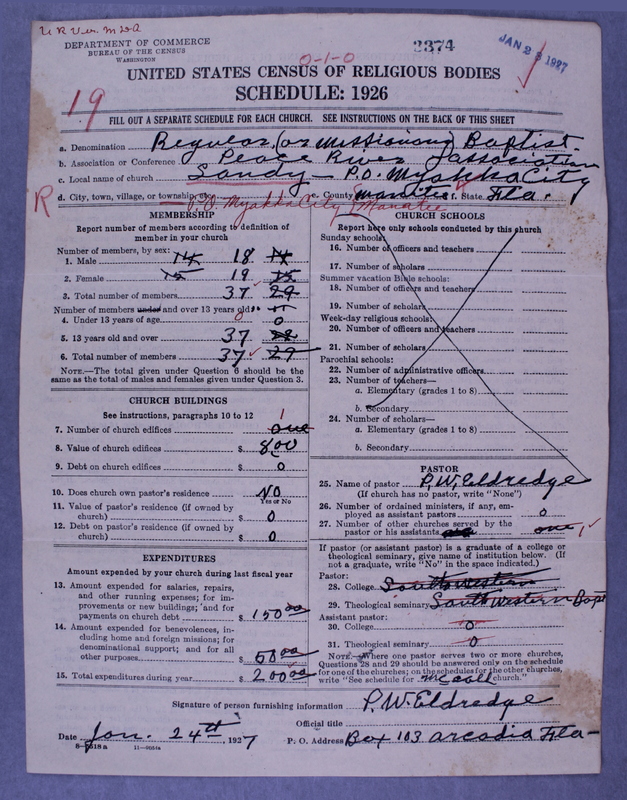 DEPARTMENT OF COMMERCE
BUREAU OF THE CENSUS
WASHINGTON
0-1-0
2374
JAN 28 1927
UNITED STATES CENSUS OF RELIGIOUS BODIES
SCHEDULE: 1926
19
FILL OUT A SEPARATE SCHEDULE FOR EACH CHURCH. SEE INSTRUCTIONS ON THE BACK OF THIS SHEET
a. Denomination Regular (or missionary) Baptist.
b. Association or Conference Peace River Association
c. Local name of church Sandy — P.O. Myakka City
d. City, town, village, or township e. County Manatee f. State Fla.
R P.O. Myakka City Manatee
MEMBERSHIP
Report number of members according to definition of member in your church
Number of members, by sex:
1. Male 14 18 14
2. Female 15 19 15
3. Total number of members 37 29
Number of members under and over 13 years old:
4. Under 13 years of age 0 0
5. 13 years old and over 37
6. Total number of members 37 29
NOTE.—The total given under Question 6 should be the same as the total of males and females given under Question 3.
CHURCH BUILDINGS
See instructions, paragraphs 10 to 12
7. Number of church edifices one 1
8. Value of church edifices $ 800
9. Debt on church edifices $ 0
10. Does church own pastor's residence No
Yes or No
11. Value of pastor's residence (if owned by church) $ 0
12. Debt on pastor's residence (if owned by church) $ 0
EXPENDITURES
Amount expended by your church during last fiscal year
13. Amount expended for salaries, repairs, and other running expenses; for improvements or new buildings; and for payments on church debt $ 150.00
14. Amount expended for benevolences, including home and foreign missions; for denominational support; and for all other purposes $ 50.00
15. Total expenditures during year $ 200.00
CHURCH SCHOOLS
Report here only schools conducted by this church
Sunday schools:
16. Number of officers and teachers
17. Number of scholars
Summer vacation Bible schools:
18. Number of officers and teachers
19. Number of scholars
Week-day religious schools:
20. Number of officers and teachers
21. Number of scholars
Parochial schools:
22. Number of administrative officers
23. Number of teachers—
a. Elementary (grades 1 to 8)
b. Secondary
24. Number of scholars—
a. Elementary (grades 1 to 8)
b. Secondary
PASTOR
25. Name of pastor P. W. Eldredge
(If church has no pastor, write "None")
26. Number of ordained ministers, if any, employed as assistant pastors 0
27. Number of other churches served by the pastor or his assistants one 1
If pastor (or assistant pastor) is a graduate of a college or theological seminary, give name of institution below. (If not a graduate, write "No" in the space indicated.)
Pastor:
28. College Southwestern
29. Theological seminary Southwestern Bapt
Assistant pastor:
30. College 0
31. Theological seminary 0
NOTE.—Where one pastor serves two or more churches, Questions 28 and 29 should be answered only on the schedule for one of the churches; on the schedules for the other churches, write "See schedule for McCall church."
Signature of person furnishing information P. W. Eldredge
Official title
Date Jan. 24th, 1927 P. O. Address Box 103 Arcadia Fla—
8-5518a 11-9034a